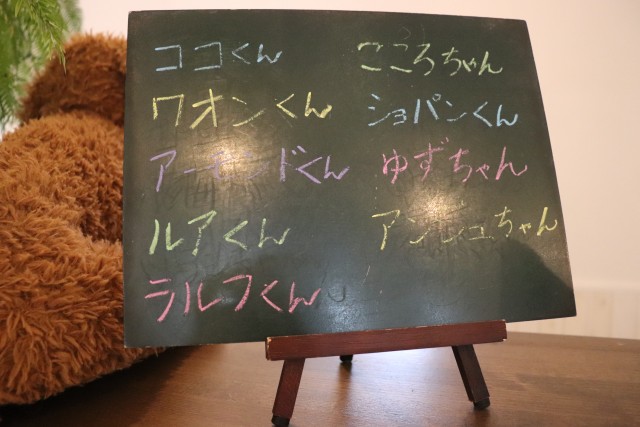 ココくん
ワオンくん
アーモンドくん
ルアくん
ラルフくん
こころちゃん
ショパンくん
ゆずちゃん
アンジュちゃん